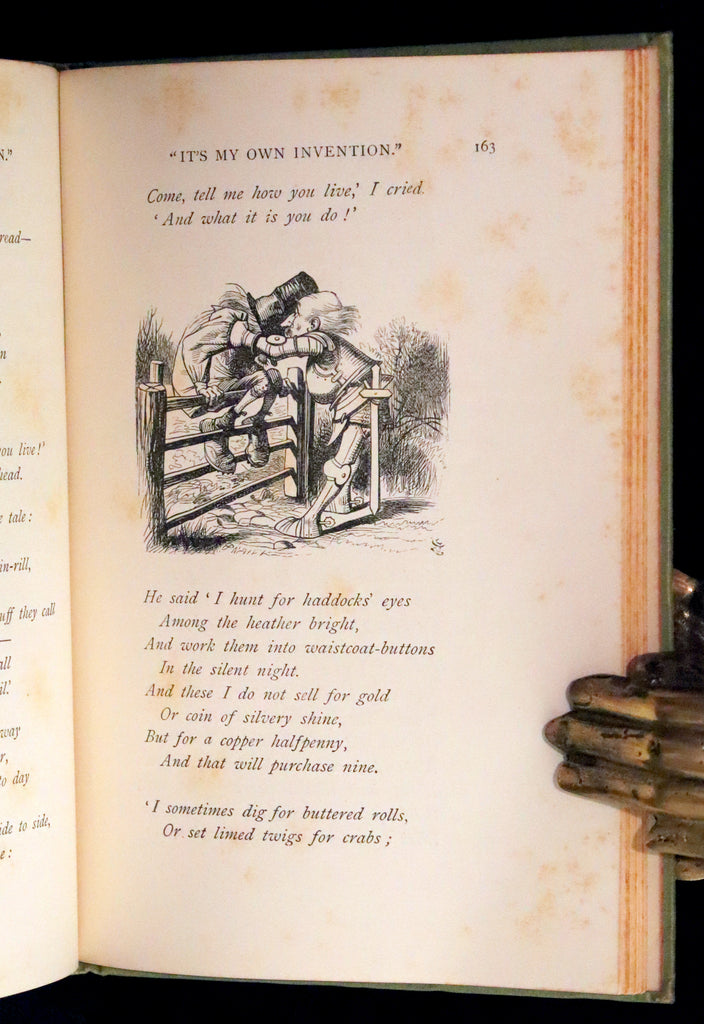 N."
read—
n
you live!'
head.
e tale:
in-rill,
uff they call
—
all
il.'
way
r,
to day
ide to side,
e:
"IT'S MY OWN INVENTION." 163
Come, tell me how you live,' I cried
'And what it is you do!'
He said 'I hunt for haddocks' eyes
Among the heather bright,
And work them into waistcoat-buttons
In the silent night.
And these I do not sell for gold
Or coin of silvery shine,
But for a copper halfpenny,
And that will purchase nine.
'I sometimes dig for buttered rolls,
Or set limed twigs for crabs;